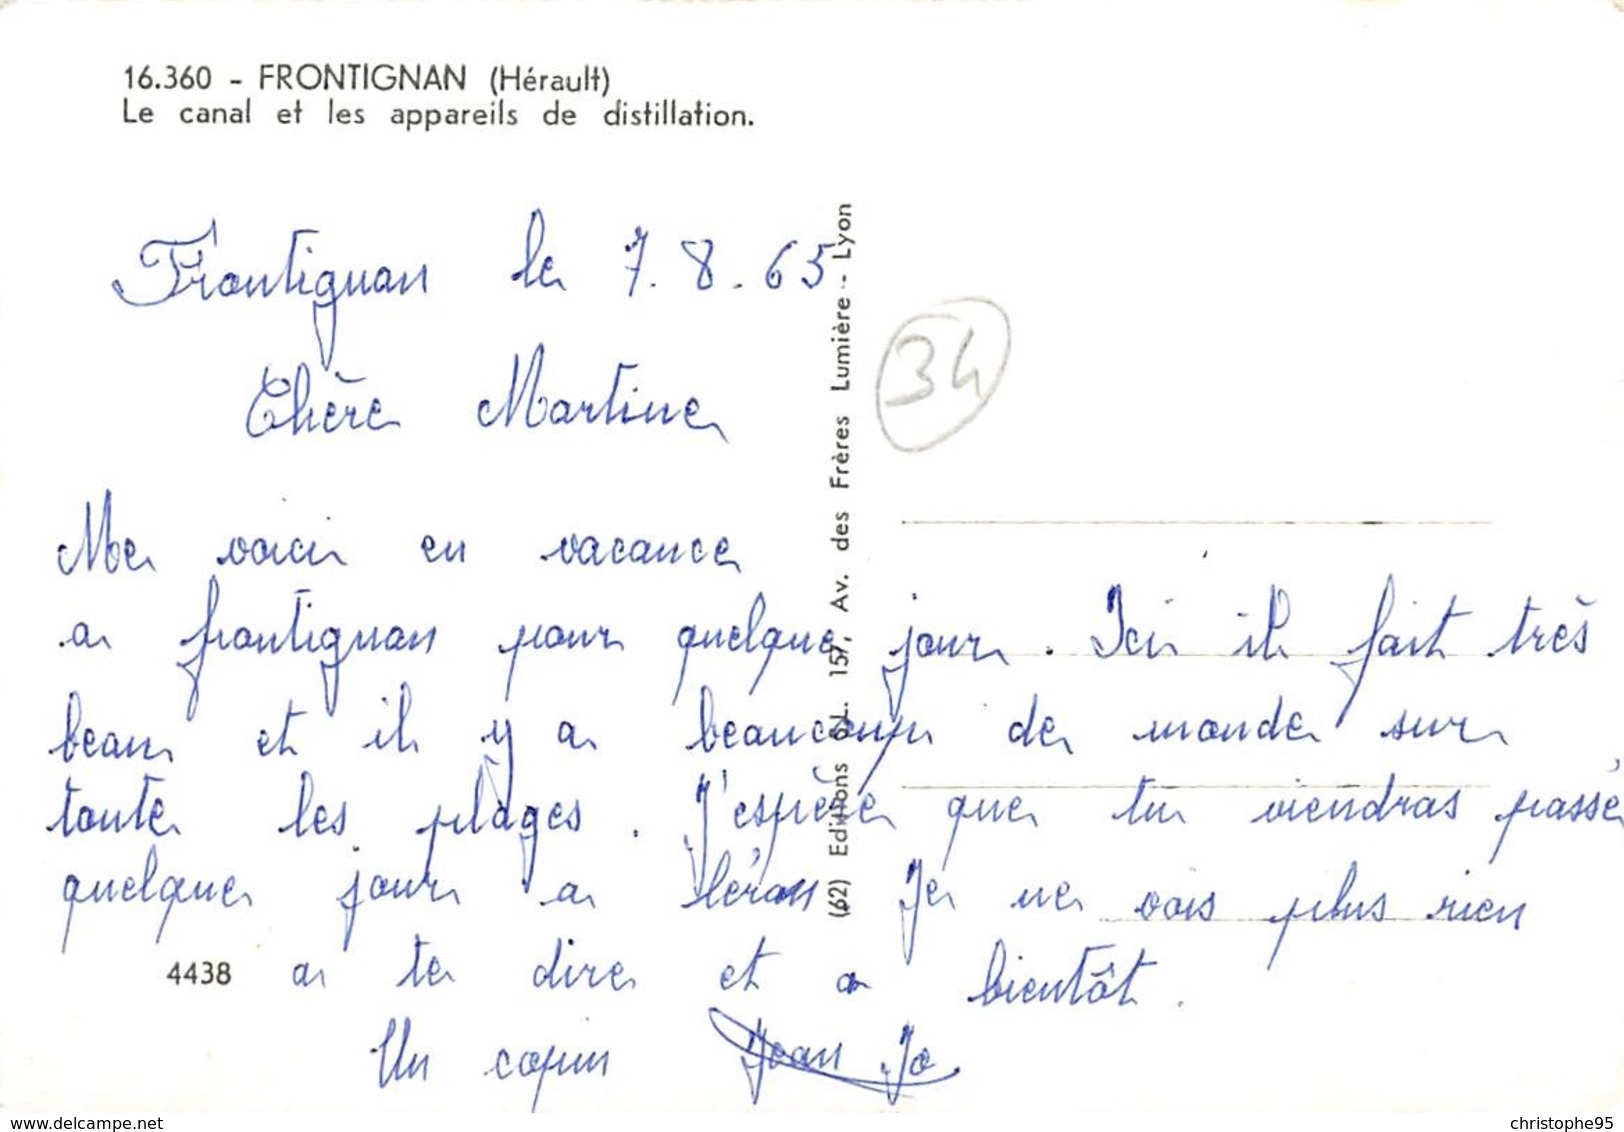 16.360 - FRONTIGNAN (Hérault)
Le canal et les appareils de distillation.
Frontignan le 7.8.65
Chère Martine
Me voici en vacance
a frontignan pour quelque jour. Ici il fait très
beau et il y a beaucoup de monde sur
toute les plâges. J'espère que tu viendras passé
quelque jour a Je ne vois plus rien
a te dire et a bientôt.
Un copin Jean Jo
4438
(62) Editions S.L. 157, Av. des Frères Lumière - Lyon
34
www.delcampe.net
christophe95